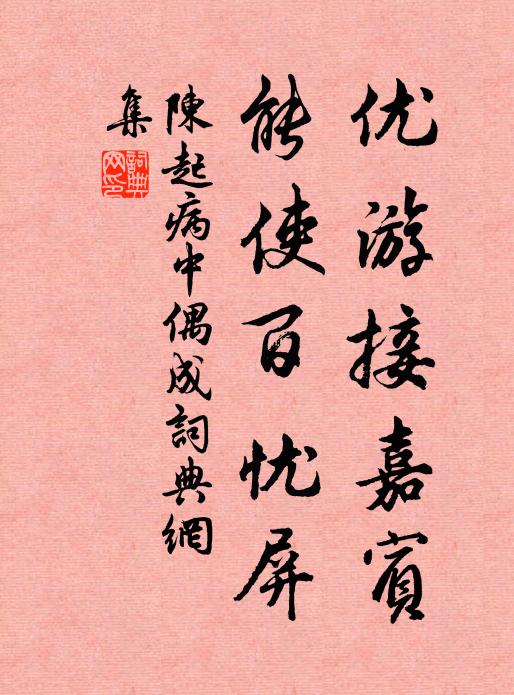 优游接嘉宾
能使百忧屏
陳起病中偶成詞典網
集
詞典
网印